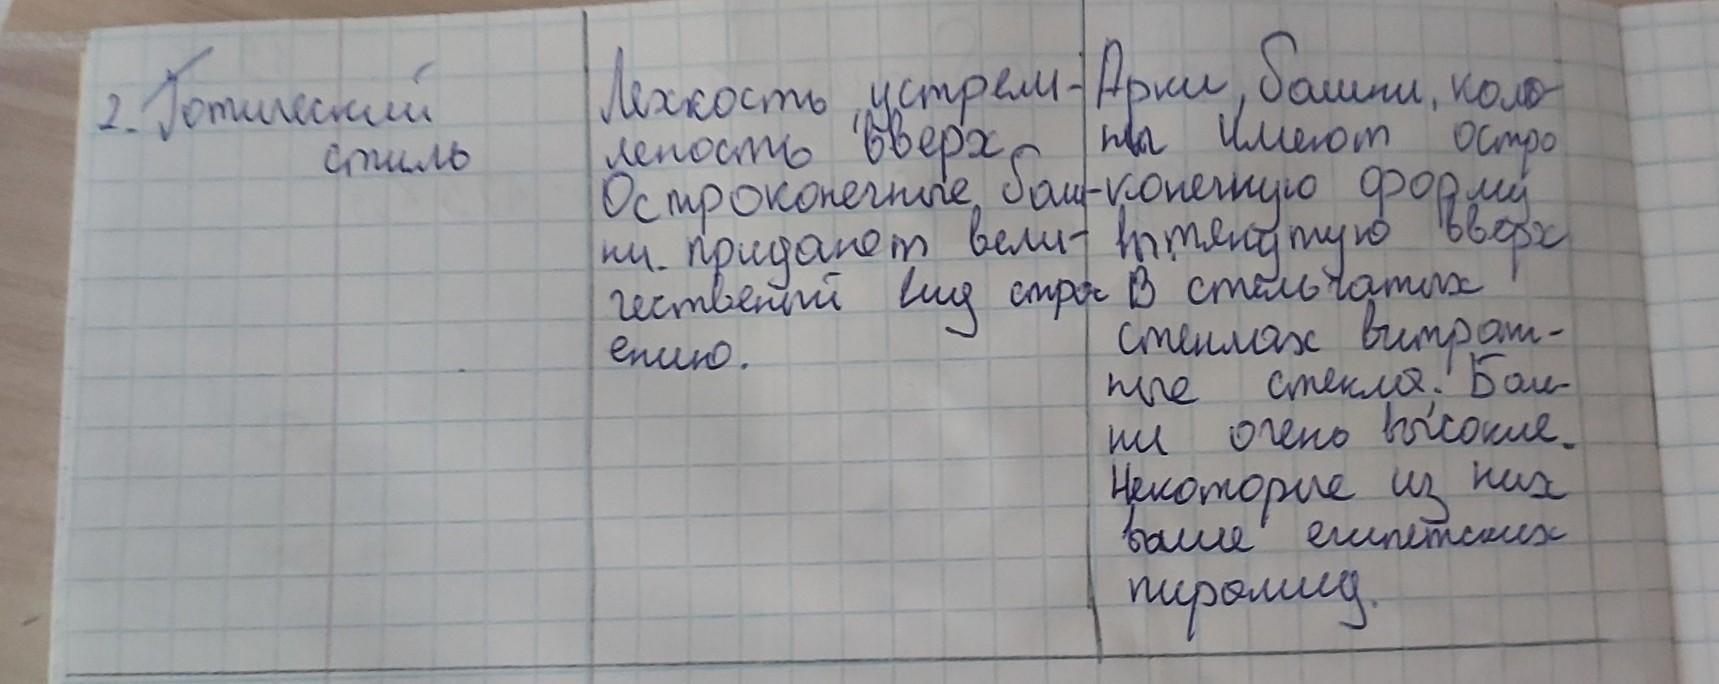 2. Готический
стиль
Лехкость, устрем-
леность вверх
Остроконечные баш-
ни. придают вели-
чественый вид стро
ению.
Арки, башни, коло-
ны имеют остро
конечную форму
вытянутую вверх
В стельчатых
стенмах витраж-
ные стекла. Баш-
ни очень высокие.
Некоторые из них
выше египетских
пирамид.